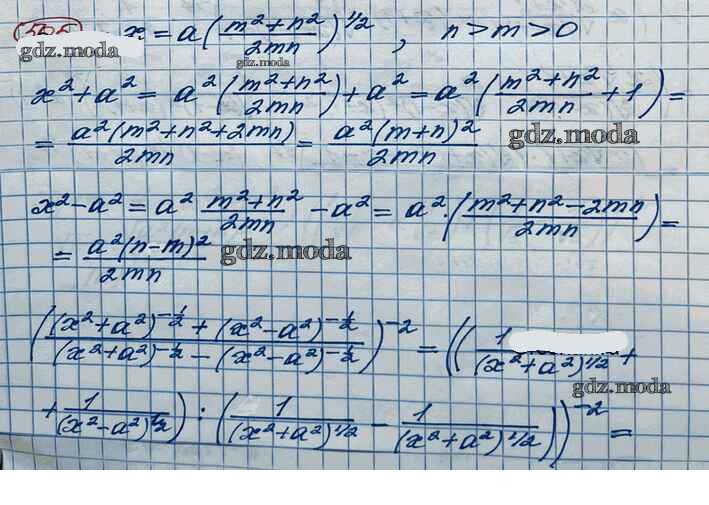 x = a((m²+n²)/(2mn))^(1/2), n > m > 0
gdz.moda
gdz.moda
x²+a² = a²((m²+n²)/(2mn)) + a² = a²((m²+n²)/(2mn) + 1) =
= a²(m²+n²+2mn)/(2mn) = a²(m+n)²/(2mn)
gdz.moda
x²-a² = a² (m²+n²)/(2mn) - a² = a²·((m²+n²-2mn)/(2mn)) =
= a²(n-m)²/(2mn)
gdz.moda
(((x²+a²)^(-1/2) + (x²-a²)^(-1/2))/((x²+a²)^(-1/2) - (x²-a²)^(-1/2)))^(-2) = ((1/(x²+a²)^(1/2) +
gdz.moda
+ 1/(x²-a²)^(1/2)) : (1/(x²+a²)^(1/2) - 1/(x²+a²)^(1/2)))^(-2) =